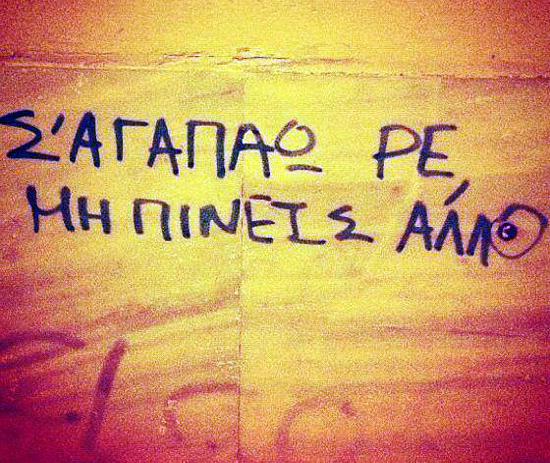 Σ'ΑΓΑΠΑΩ ΡΕ,
ΜΗ ΠΙΝΕΙΣ ΑΛΛΟ